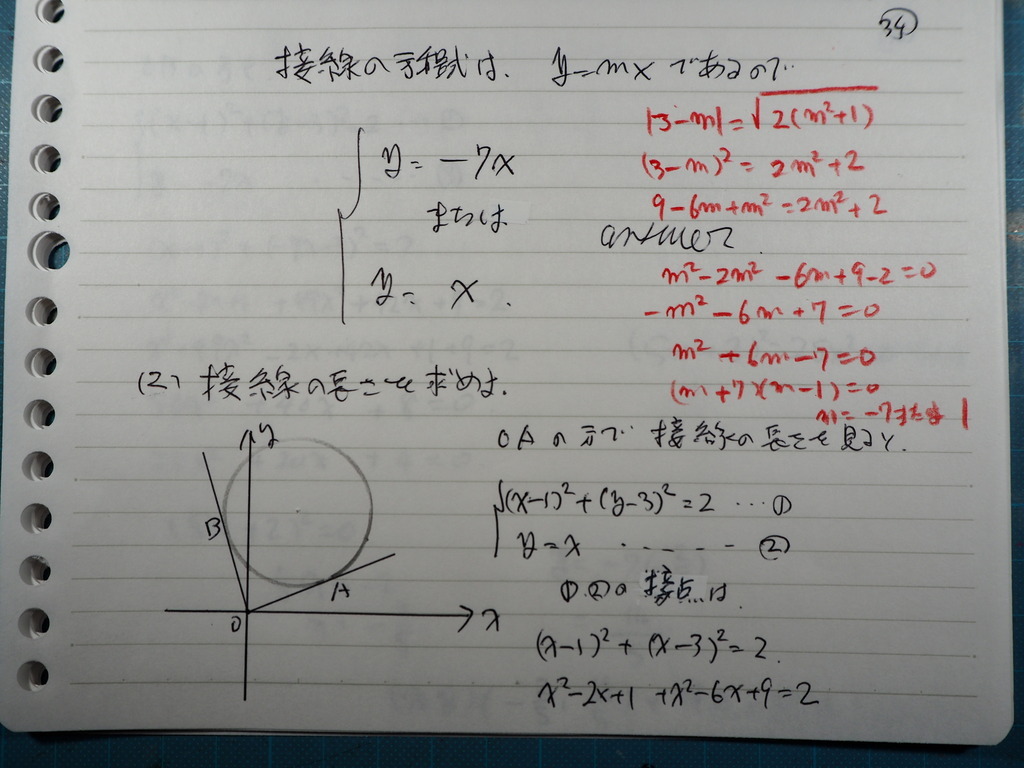 34
接線の方程式は、 y=mx であるので
|3-m|=√2(m²+1)
(3-m)² = 2m²+2
9-6m+m²=2m²+2
y= -7x
または
y= x.
answer
m²-2m² -6m+9-2=0
-m²-6m+7=0
m²+6m-7=0
(m+7)(m-1)=0
m= -7または 1
(2) 接線の長さを求めよ.
OAの方で 接線の長さを見ると、
(x-1)²+(y-3)²=2 …①
y=x ‥‥‥ ②
①②の接点は
(x-1)²+(x-3)²=2.
x²-2x+1 +x²-6x+9=2
y
B
A
O
x